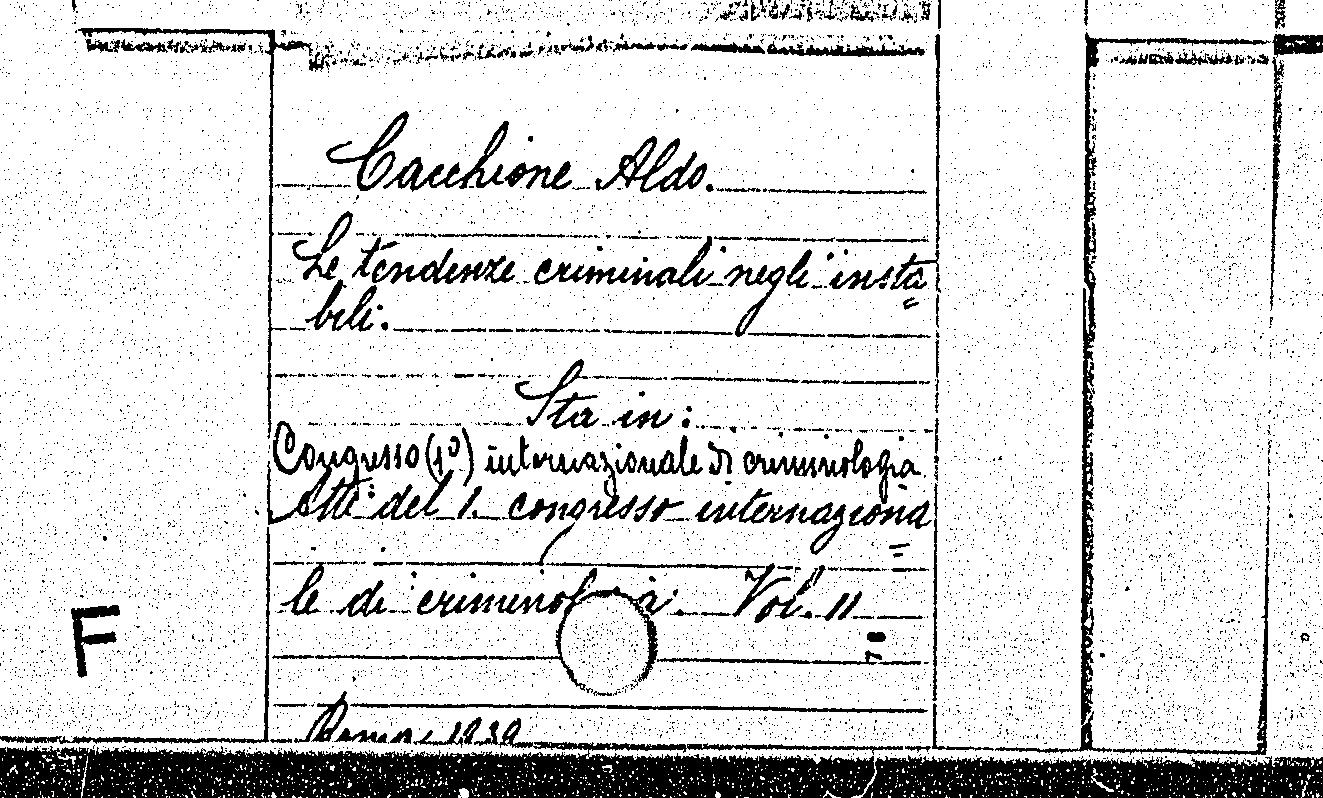 Cacchione Aldo.
Le tendenze criminali negli insta=
bili.
Sta in:
Congresso (1º) internazionale di criminologia
Atti del 1. congresso internaziona=
le di criminologia. Vol. II
F
Roma, 1939